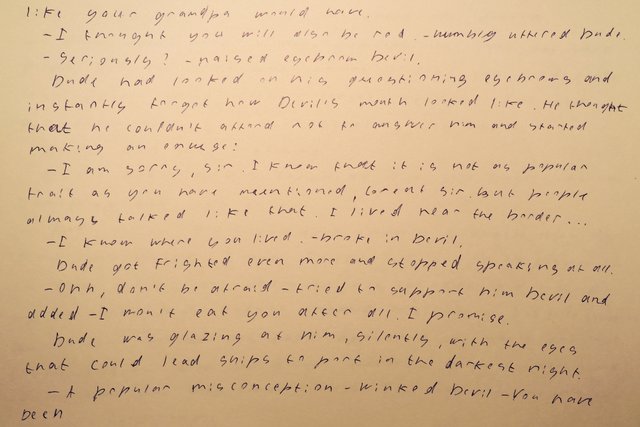 like your grandpa would have.
-I thought you will also be red. -numbly uttered Dude.
-Seriously? -raised eyebrow Devil.
Dude had looked on his questioning eyebrows and
instantly forgot how Devil's mouth looked like. He thought
that he couldn't afford not to answer him and started
making an excuse:
-I am sorry, sir. I know that it is not as popular
trait as you have meantioned, Great sir. But people
always talked like that. I lived near the border...
-I know where you lived. -broke in Devil.
Dude got frighted even more and stopped speaking at all.
-Ohh, don't be afraid -tried to support him Devil and
added -I won't eat you after all. I promise.
Dude was glazing at him, silently, with the eyes
that could lead ships to port in the darkest night.
-A popular misconception -winked Devil -You have
been